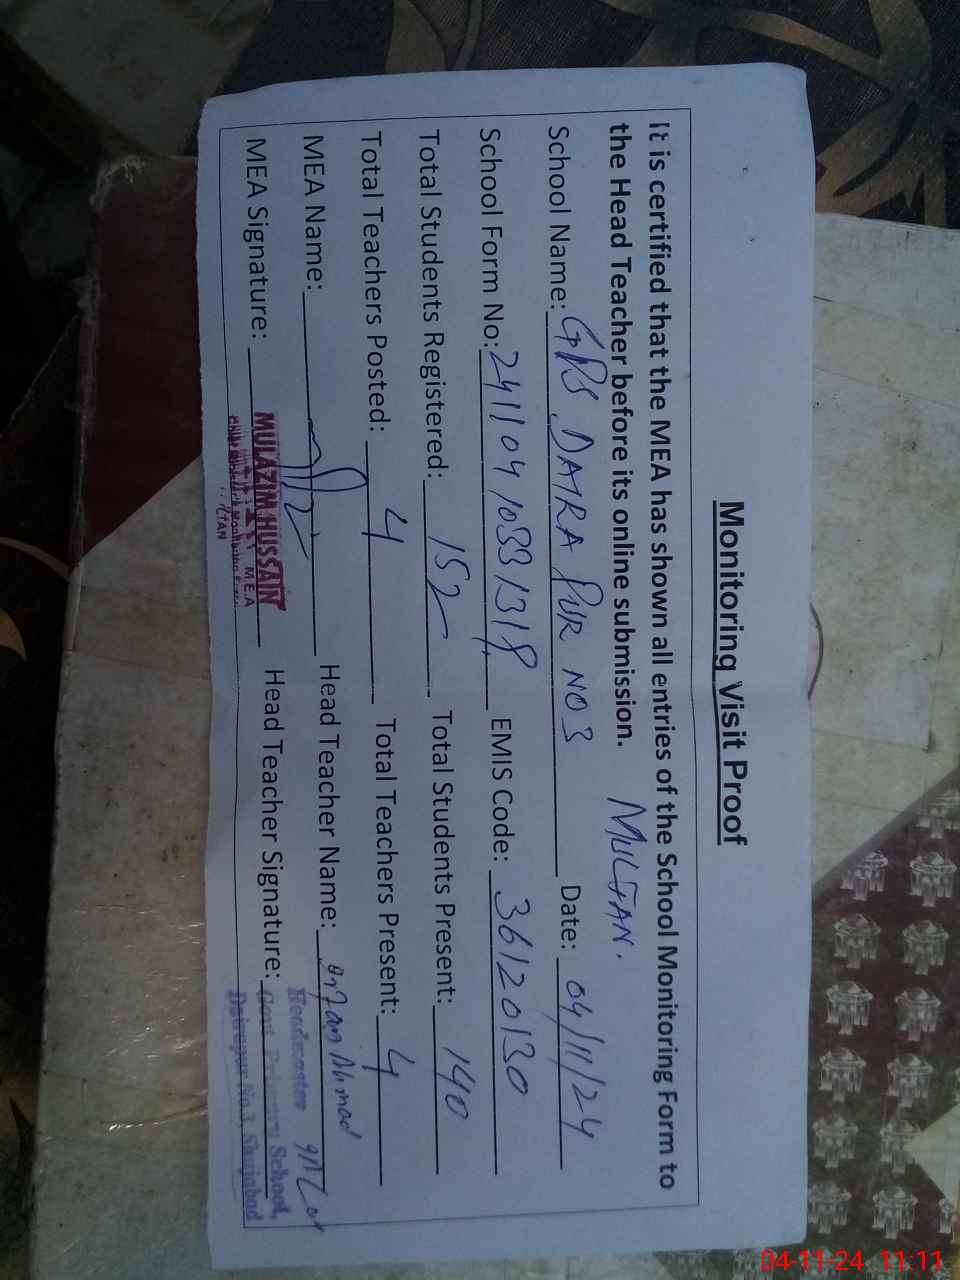 Monitoring Visit Proof
It is certified that the MEA has shown all entries of the School Monitoring Form to
the Head Teacher before its online submission.
MULTAN.
School Name: GPS DAIRA PUR NO 3 Date: 04/11/24
School Form No: 24110410331318 EMIS Code: 36120130
Total Students Registered: 152 Total Students Present: 140
Total Teachers Posted: 4 Total Teachers Present: 4
MEA Name: Head Teacher Name: Irfan Ahmad
MEA Signature: Head Teacher Signature:
MULAZIM HUSSAIN
MEA
Headmaster
Govt. Primary School,
Dairapur No.3, Shujabad
04-11-24 11:11